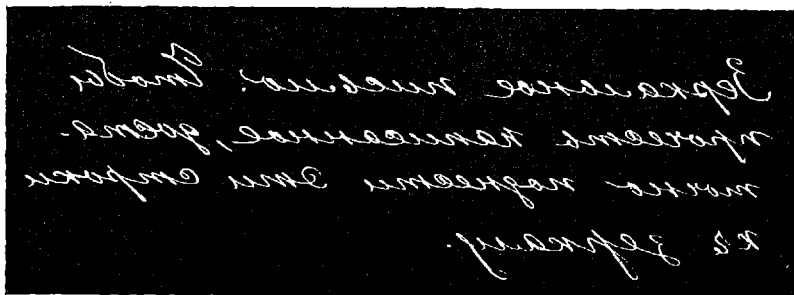 Зеркальное письмо. Чтобы
прочесть написанное, доста-
точно поднести эти строки
к зеркалу.